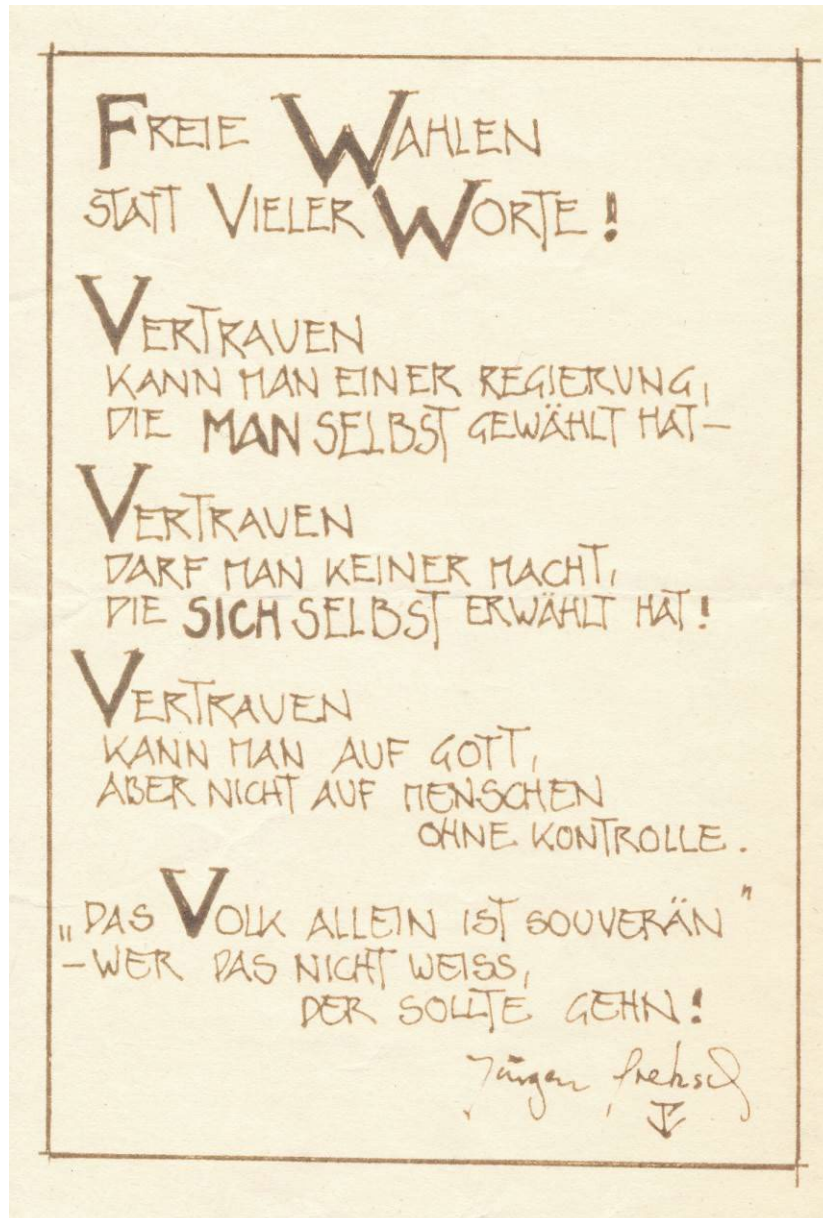 FREIE WAHLEN
STATT VIELER WORTE!
VERTRAUEN
KANN MAN EINER REGIERUNG,
DIE MAN SELBST GEWÄHLT HAT–
VERTRAUEN
DARF MAN KEINER MACHT,
DIE SICH SELBST ERWÄHLT HAT!
VERTRAUEN
KANN MAN AUF GOTT,
ABER NICHT AUF MENSCHEN
OHNE KONTROLLE.
„DAS VOLK ALLEIN IST SOUVERÄN"
–WER DAS NICHT WEISS,
DER SOLLTE GEHN!
Jürgen